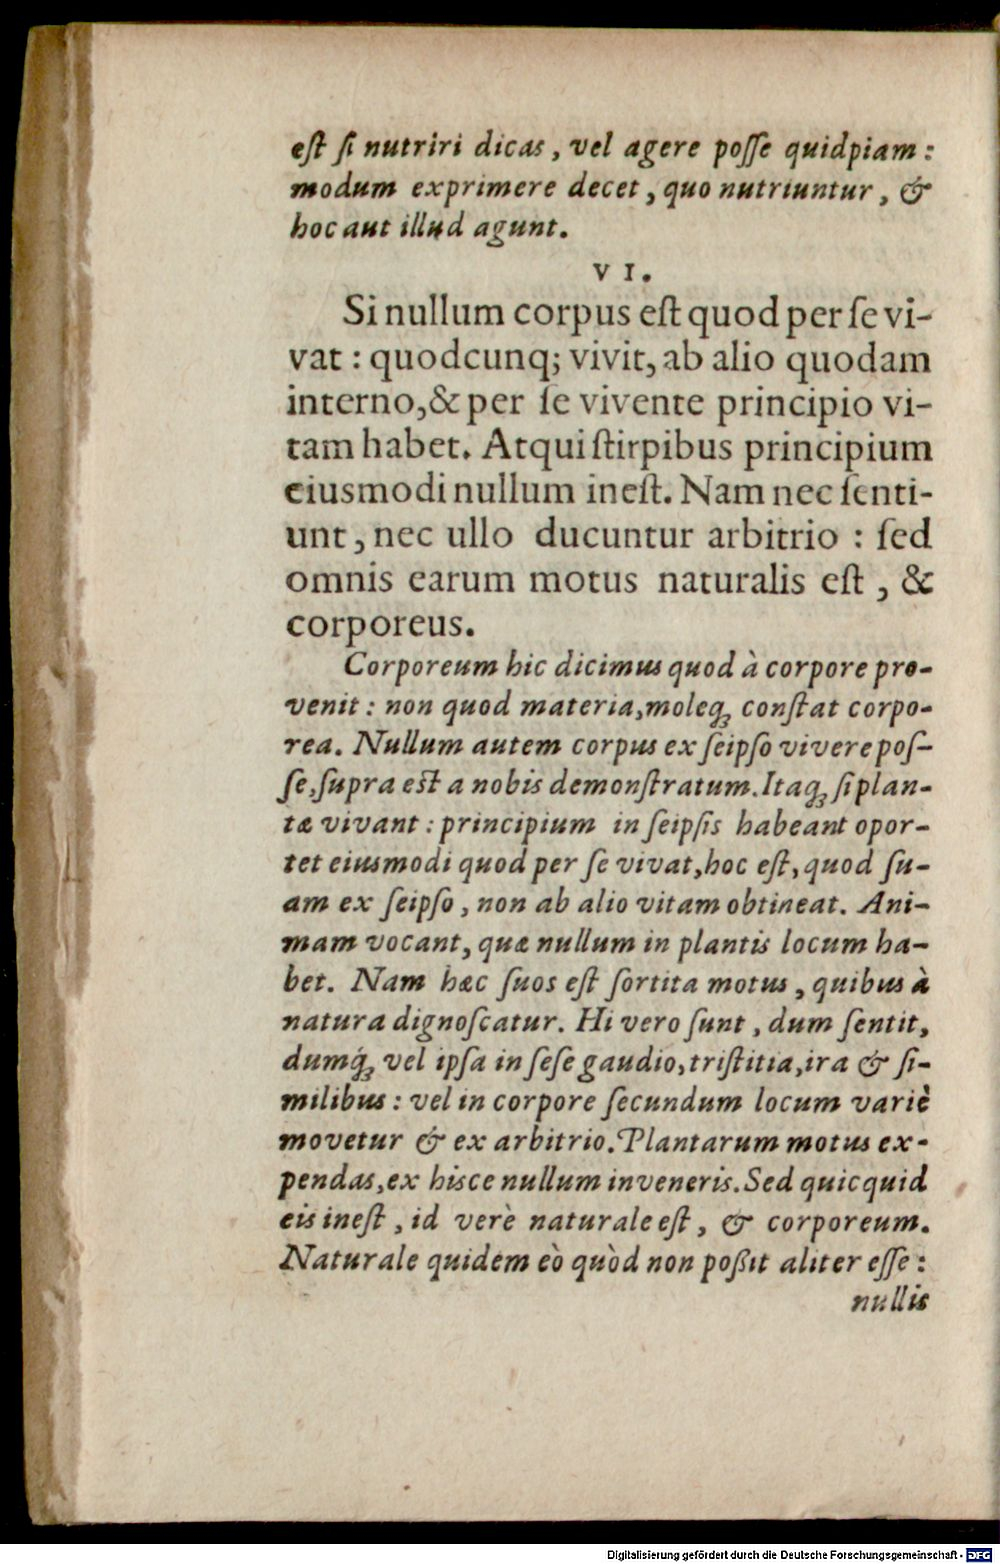 eſt ſi nutriri dicas, vel agere poſſe quidpiam:
modum exprimere decet, quo nutriuntur, &
hoc aut illud agunt.
VI.
Si nullum corpus eſt quod per ſe vi-
vat: quodcunq; vivit, ab alio quodam
interno, & per ſe vivente principio vi-
tam habet. Atqui ſtirpibus principium
eiusmodi nullum ineſt. Nam nec ſenti-
unt, nec ullo ducuntur arbitrio: ſed
omnis earum motus naturalis eſt, &
corporeus.
Corporeum hic dicimus quod à corpore pro-
venit: non quod materia, moleq; conſtat corpo-
rea. Nullum autem corpus ex ſeipſo vivere poſ-
ſe, ſupra est a nobis demonſtratum. Itaq; ſi plan-
tæ vivant: principium in ſeipſis habeant opor-
tet eiusmodi quod per ſe vivat, hoc eſt, quod ſu-
am ex ſeipſo, non ab alio vitam obtineat. Ani-
mam vocant, quæ nullum in plantis locum ha-
bet. Nam hæc ſuos eſt ſortita motus, quibus à
natura dignoſcatur. Hi vero ſunt, dum ſentit,
dumq́; vel ipſa in ſeſe gaudio, triſtitia, ira & ſi-
milibus: vel in corpore ſecundum locum variè
movetur & ex arbitrio. Plantarum motus ex-
pendas, ex hisce nullum inveneris. Sed quicquid
eis ineſt, id verè naturale eſt, & corporeum.
Naturale quidem eò quòd non poßit aliter eſſe:
nullis
Digitalisierung gefördert durch die Deutsche Forschungsgemeinschaft - DFG